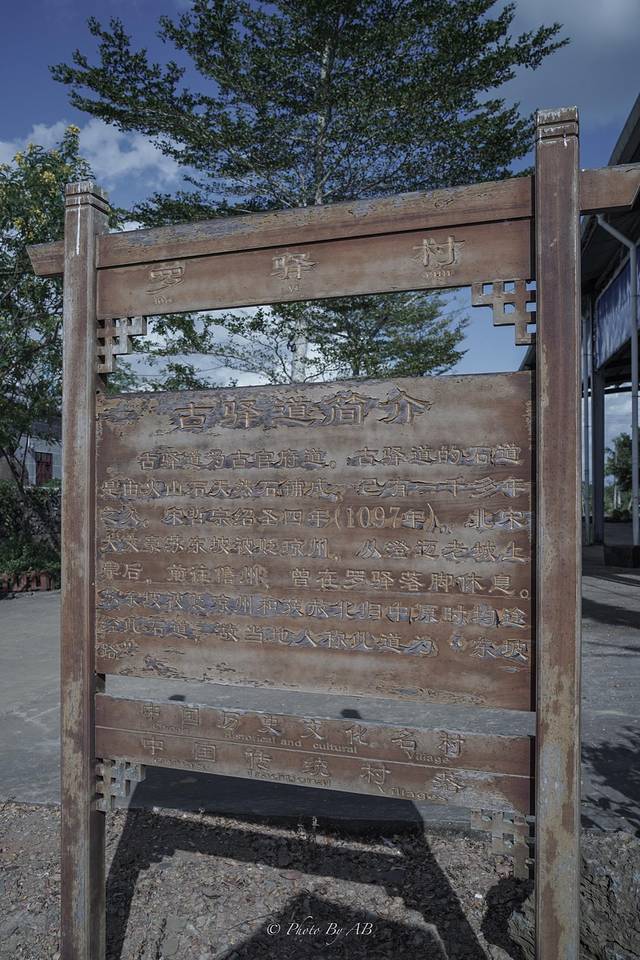 罗驿村
luo yi cun
古驿道简介
古驿道为古官府道。古驿道的石道
是由火山石天然石铺成，已有一千多年
之久。宋哲宗绍圣四年(1097年)，北宋
大文豪苏东坡被贬琼州，从澄迈老城上
岸后，前往儋州，曾在罗驿落脚休息。
苏东坡被贬琼州和获赦北归中原时均途
经此石道，故当地人称此道为"东坡
路"
中国历史文化名村
Historical and cultural Village
中国传统村落
Village
© Photo By AB